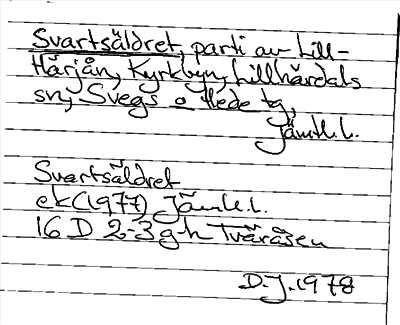 Svartsäldret, parti av Lill-
Härjån, Kyrkbyn, Lillhärdals
sn, Svegs o Hede tg,
Jämtl.l.
Svartsäldret
ek (1977) Jämtl.l.
16 D 2-3 g-h Tväråsen
D.J. 1978